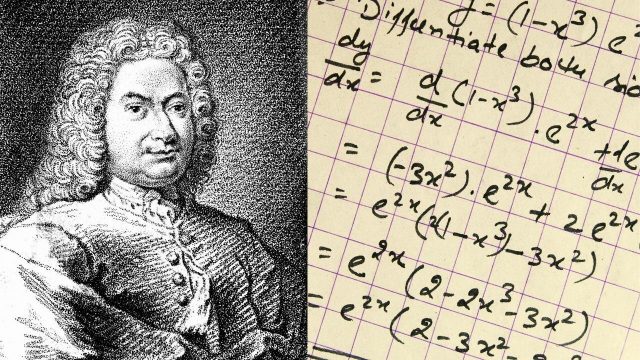 y = (1-x³) e²
Differentiate both
dy/dx = d/dx (1-x³) . e^2x + de/dx
= (-3x²) . e^2x + 2 e^2x
= e^2x (2(1-x³) - 3x²)
= e^2x (2 - 2x³ - 3x²)
= e^2x (2 - 3x²